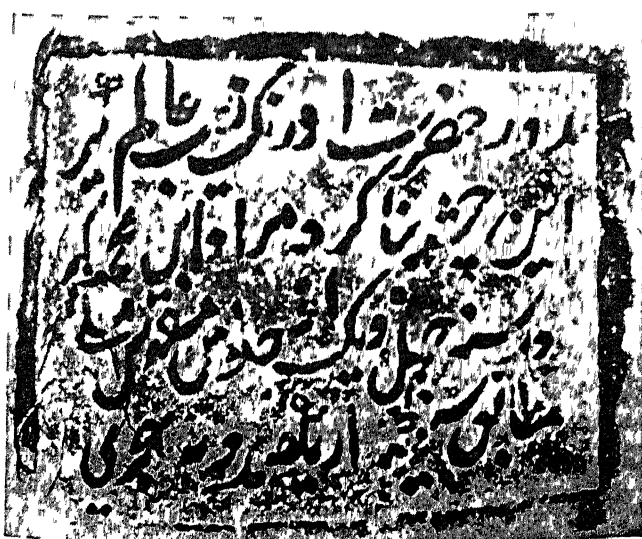 بدور حضرت اورنگ زیب عالم گیر
این چشمه بنا کرد مراد ابن محمد
در سنه چهل و یک از جلوس مقدس
مطابق سنه یکصد و نه هجری